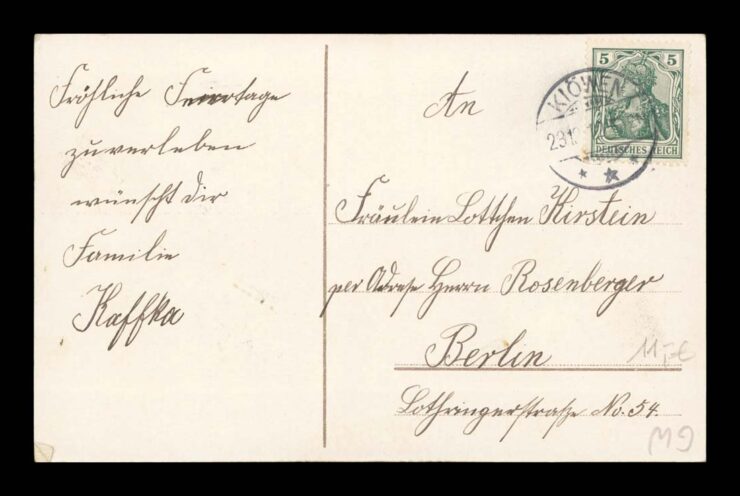 Fröhliche Feiertage
zu verleben
wünscht dir
Familie
Kaffka
An
Fräulein Lottchen Kirstein
per Adresse Herrn Rosenberger
Berlin
Lothringerstraße No. 54.
5 5
DEUTSCHES REICH
KLÖWEN
23.12
11,-€
M9